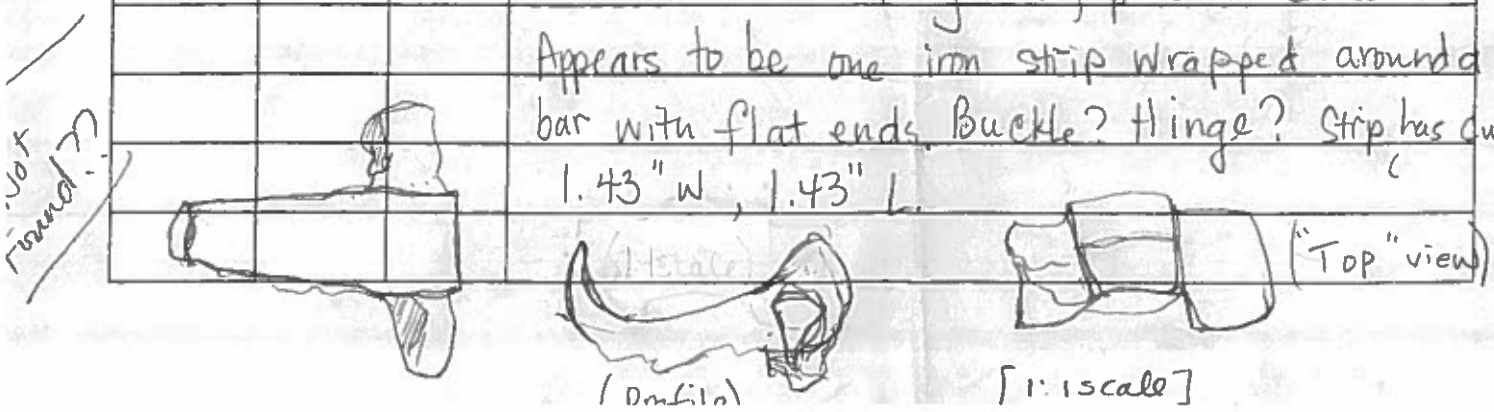 Appears to be one iron strip wrapped around a
bar with flat ends. Buckle? Hinge? Strip has
1.43" W ; 1.43" L.
("Top" view)
(Profile)
[1:1 scale]
found?